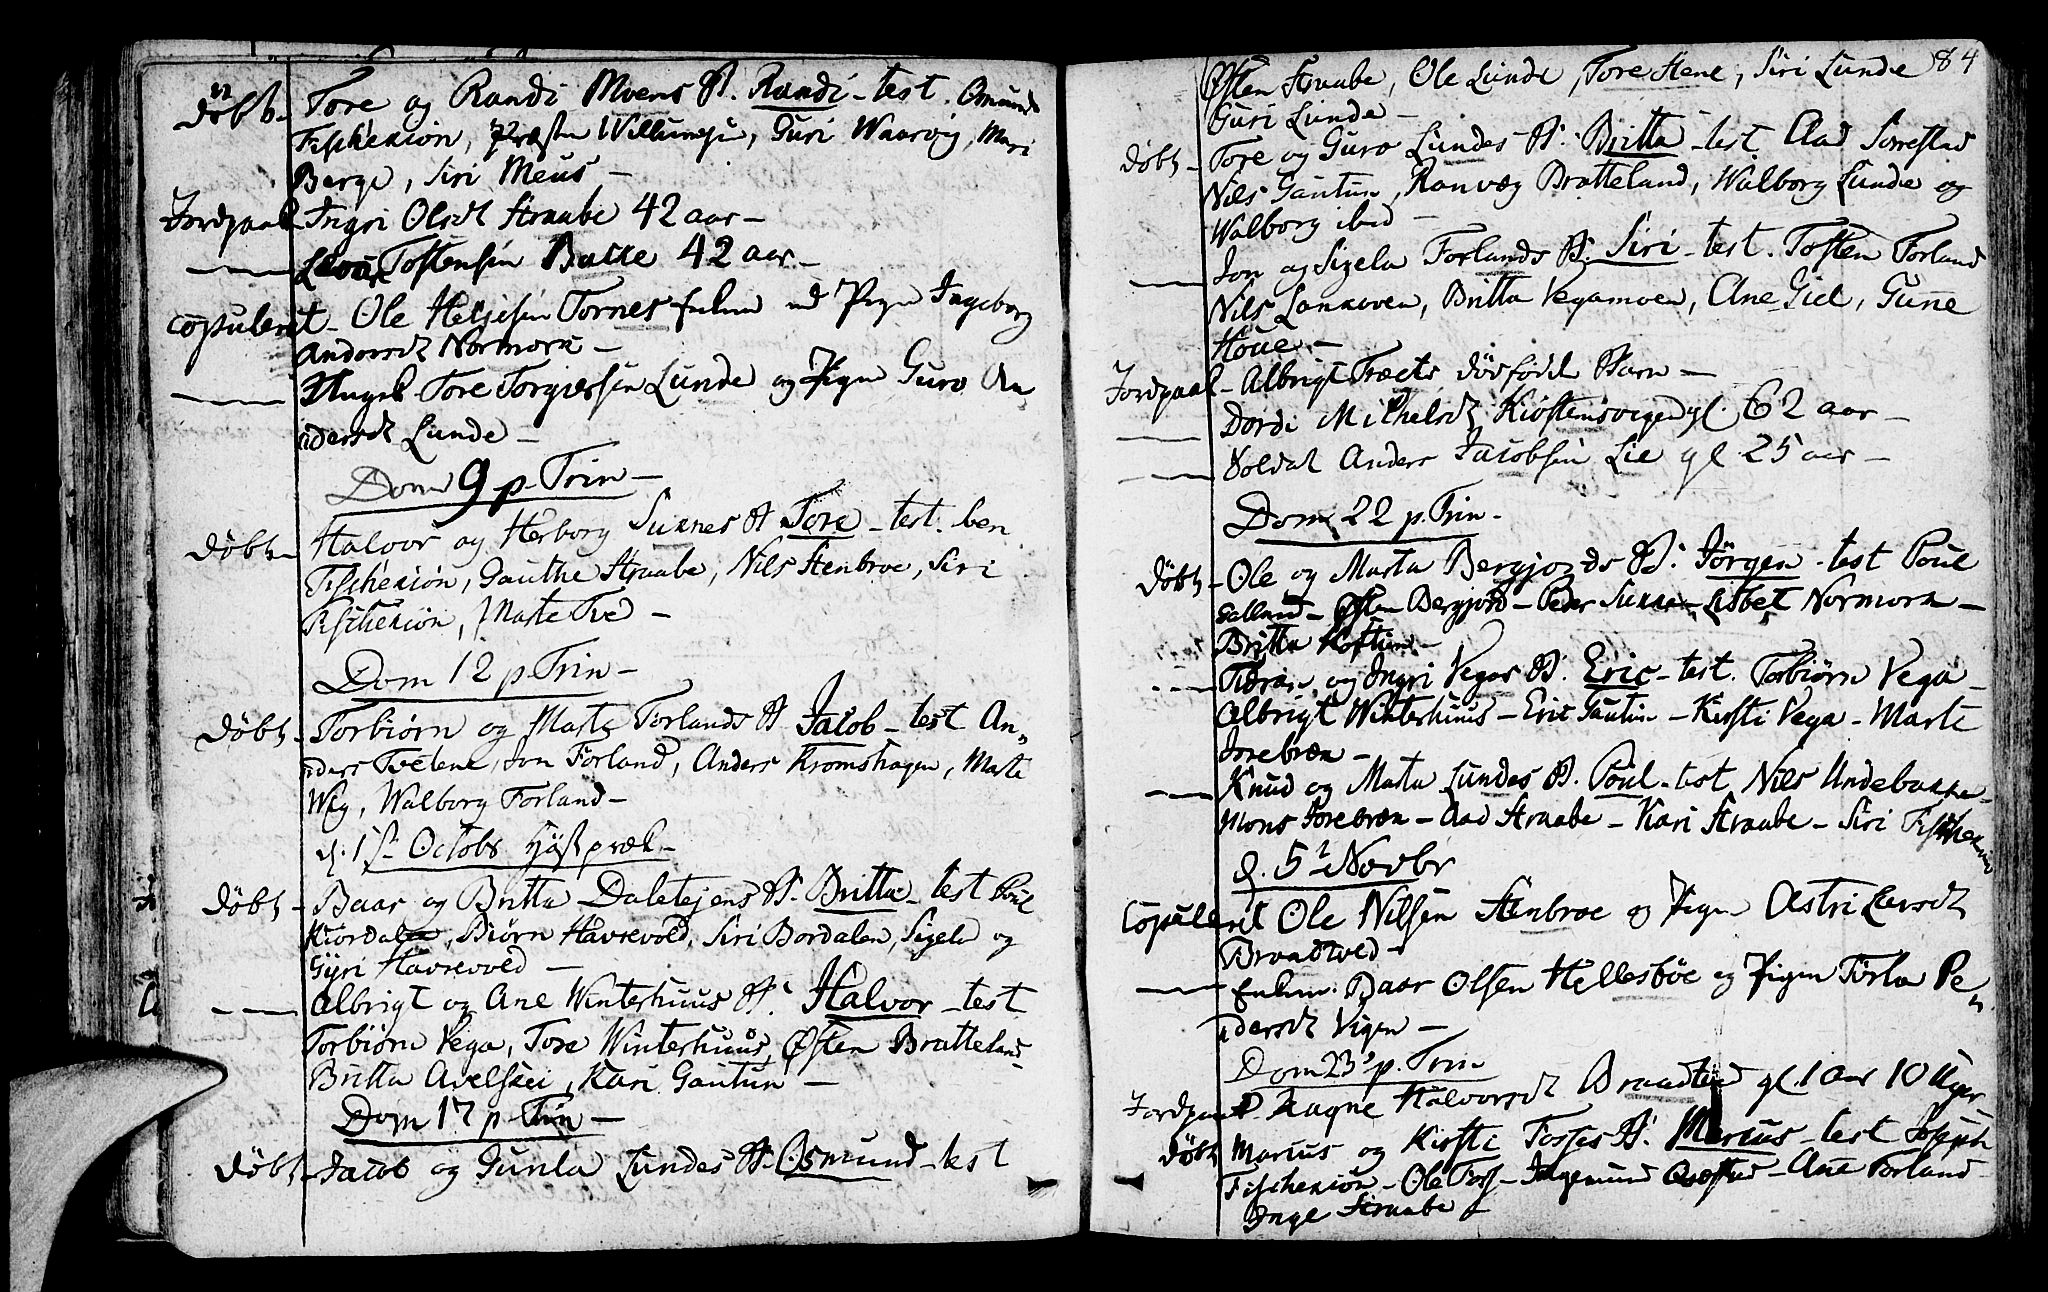 Döbt Tore og Randi Moens B. Randi - test. Osmund
Fischexiön, Præsten Willumsen, Guri Waarvig, Mari
Berge, Siri Meus -
Jordpaak. Ingri Olsdt Straabe 42 aar -
Tostensen Bakke 42 aar -
Copuleret - Ole Heljesen Tornes med Pigen Ingeborg
Andersdt Normorn -
Ungel Tore Torgiersen Lunde og Pigen Guro An
dersdt Lunde -
Dom 9 p. Trin -
Döbt - Halvor og Herborg Sunnes B Tore - test.
Fischexiön, Gauthe Straabe, Nils Stenbroe, Siri
Fischexiön, Marte Tve -
Dom 12 p. Trin -
Döbt - Torbiörn og Marte Forlands B Jacob - test An,
ders Tvetene, Jon Forland, Anders Kromshagen, Marte
Wig, Walborg Forland -
d. 1ste Octobr Höst præk -
Döbt - Baar og Britta Daletejens B. Britta - test Poul
Kiordalen, Biörn Havrevold, Siri Bordalen, Sigela og
Gyri Havrevold -
Albrigt og Ane Winterhuus B. Halvor - test
Torbiörn Vega, Tore Winterhuus, Østen Bratteland
Britta Axelskei, Kari Gautun -
Dom 17 p. Trin -
Döbt - Jacob og Gunla Lundes B. Osmund - test
84
Østen Straabe, Ole Lunde, Tore Stene, Siri Lunde
Guri Lunde -
Döbt - Tore og Guro Lundes B. Britta - test Aad Sorrestad
Nils Gautun, Ranvæg Bratteland, Walborg Lunde og
Walborg ibid -
Jon og Sigela Forlands B. Siri - test. Tosten Forland
Nils Lonnoven, Britta Vegamoen, Ane Giel, Gune
Houe -
Jordpaak - Albrigt Træets dödfödt Barn -
Dordi Michelsdt Kiöstensvigen gl. 62 aar -
Soldat Anders Jacobsen Lie gl 25 aar -
Dom 22 p. Trin -
Döbt - Ole og Marta Bergjords B. Jörgen - test Poul
Østen Bergjord - Peder Sunne - Lisbet Normorn -
Britta
og Ingri Vegas B. Eric - test. Torbiörn Vega -
Albrigt Winterhuus - Eric Gautun - Kirsti Vega - Marte
Jorebræn -
Knud og Marta Lundes B. Poul - test Nils Undebakke -
Mons Jorebræn - Aad Straabe - Kari Straabe - Siri Fischexiön
d. 5t Novbr
Copuleret Ole Nilsen Stenbroe og Pigen Astri Larsdt
Braadtved -
Enkem. Baar Olsen Hellesböe og Pigen Törla Pe,,
dersdt Vigen -
Dom 23 p. Trin
Jordpaak. Ragne Halvorsdt Braadtved gl. 1 aar 10 Uger
Döbt Marius og Kirsti Fosses B. Marius - test Joseph
Fischexiön - Ole Foss - Ingemund - Ane Forland
Inge Straabe -